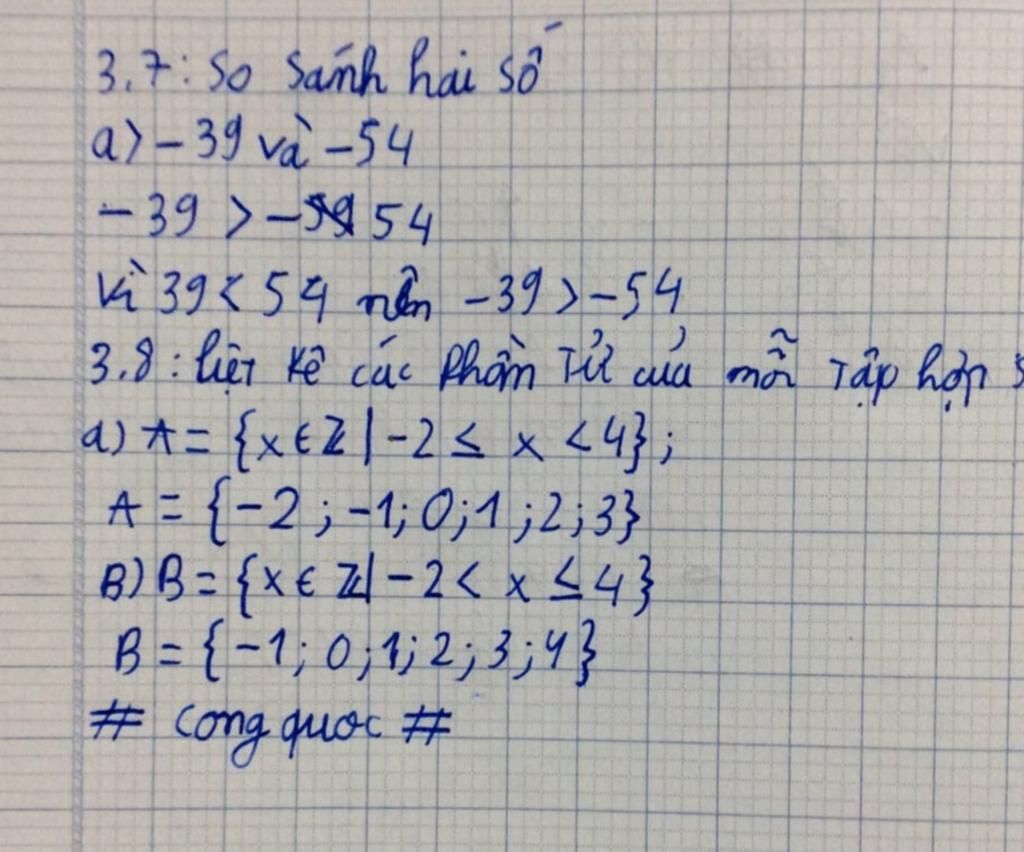 3.7: So sánh hai số
a) -39 và -54
-39 > - 54
Vì 39 < 54 nên -39 > -54
3.8: liệt kê các phần tử của mỗi tập hợp s
a) A = {x ∈ Z | -2 ≤ x < 4};
A = {-2; -1; 0; 1; 2; 3}
B) B = {x ∈ Z | -2 < x ≤ 4}
B = {-1; 0; 1; 2; 3; 4}
# cong quoc #